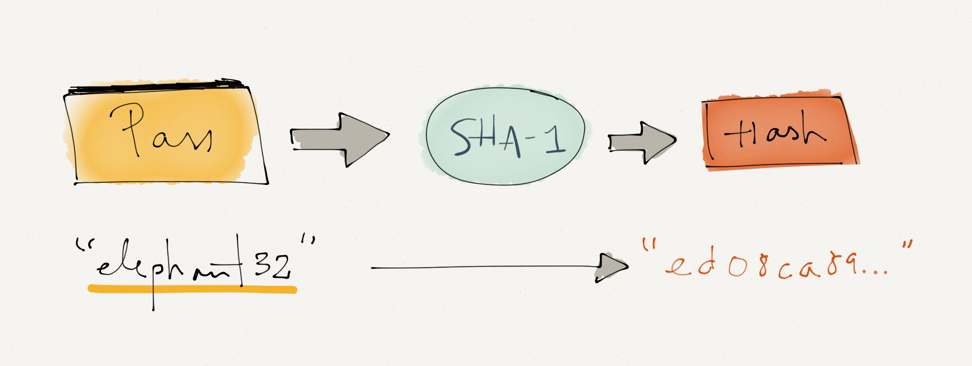 Pass
SHA-1
Hash
"elephant32"
"ed08ca89..."